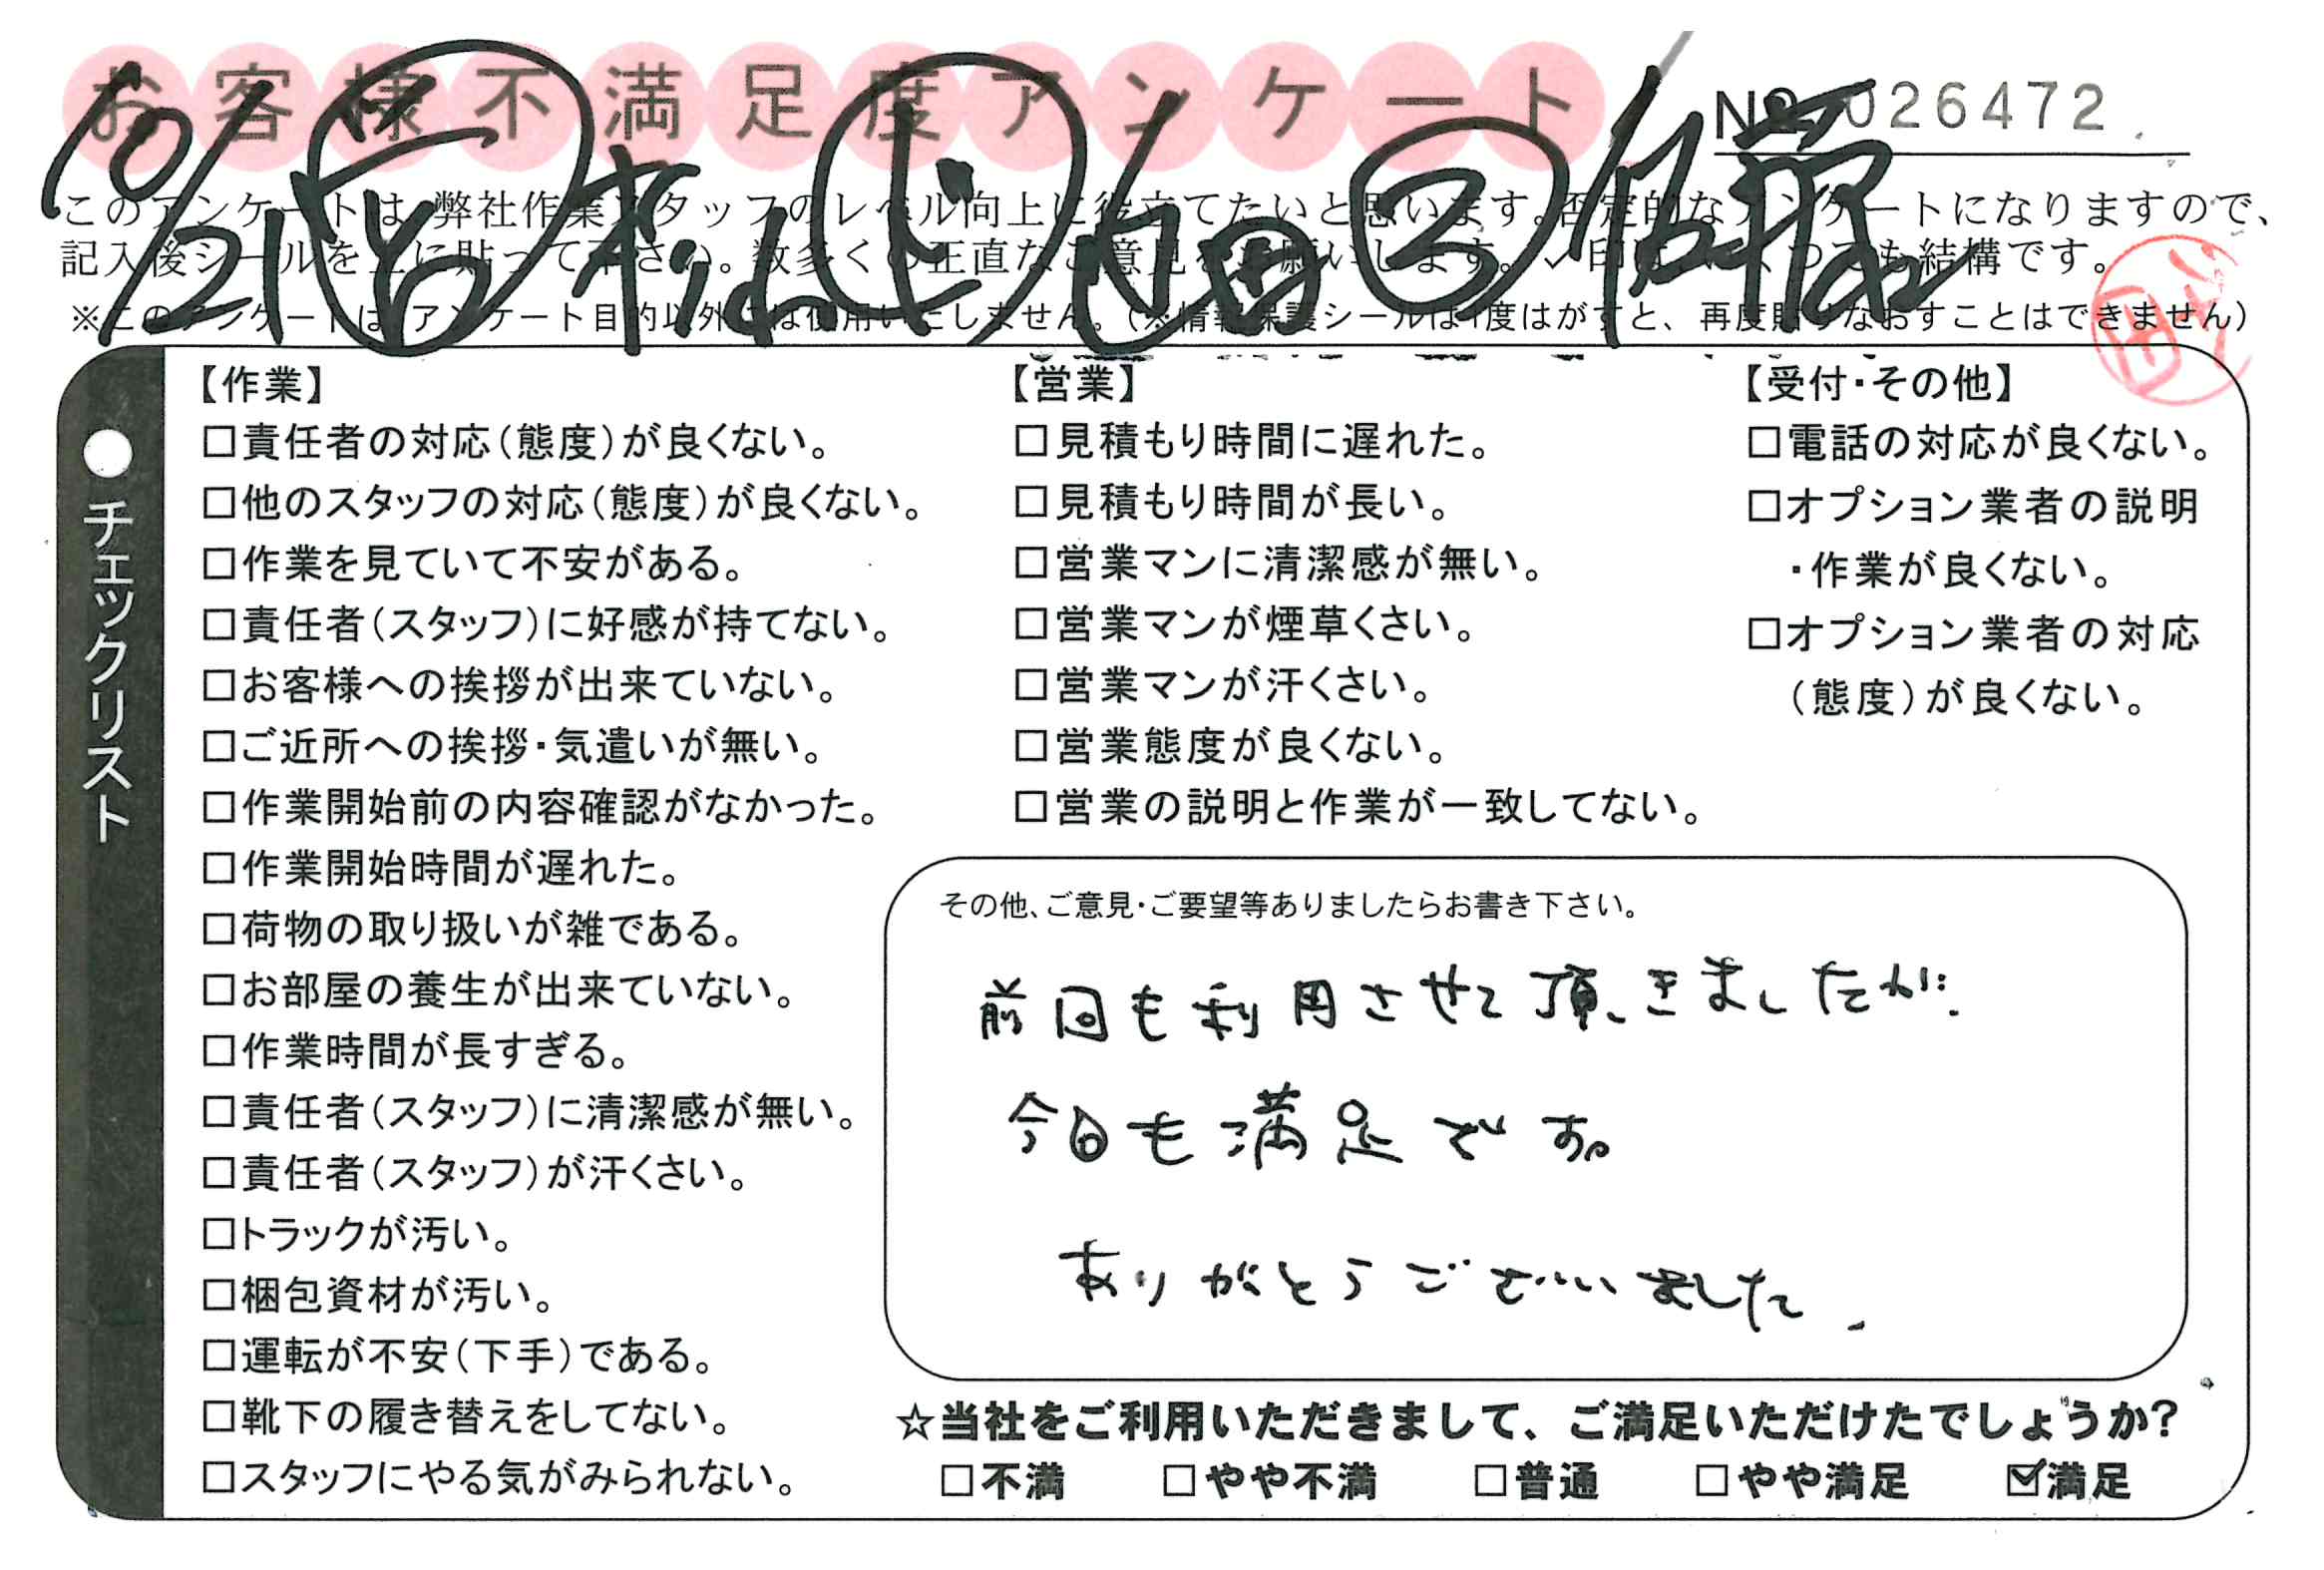 お客様不満足度アンケート
№ 026472
10/21
このアンケートは、弊社作業スタッフのレベル向上に役立てたいと思います。否定的なアンケートになりますので、
記入後シールを上に貼って下さい。数多くの正直なご意見をお願いします。✓印はいくつでも結構です。
※このアンケートは、アンケート目的以外には使用いたしません。(※情報保護シールは1度はがすと、再度貼りなおすことはできません)
●チェックリスト
【作業】
□責任者の対応(態度)が良くない。
□他のスタッフの対応(態度)が良くない。
□作業を見ていて不安がある。
□責任者(スタッフ)に好感が持てない。
□お客様への挨拶が出来ていない。
□ご近所への挨拶・気遣いが無い。
□作業開始前の内容確認がなかった。
□作業開始時間が遅れた。
□荷物の取り扱いが雑である。
□お部屋の養生が出来ていない。
□作業時間が長すぎる。
□責任者(スタッフ)に清潔感が無い。
□責任者(スタッフ)が汗くさい。
□トラックが汚い。
□梱包資材が汚い。
□運転が不安(下手)である。
□靴下の履き替えをしてない。
□スタッフにやる気がみられない。
【営業】
□見積もり時間に遅れた。
□見積もり時間が長い。
□営業マンに清潔感が無い。
□営業マンが煙草くさい。
□営業マンが汗くさい。
□営業態度が良くない。
□営業の説明と作業が一致してない。
【受付・その他】
□電話の対応が良くない。
□オプション業者の説明
・作業が良くない。
□オプション業者の対応
(態度)が良くない。
その他、ご意見・ご要望等ありましたらお書き下さい。
前回も利用させて頂きましたが、
今回も満足です。
ありがとうございました.
☆当社をご利用いただきまして、ご満足いただけたでしょうか?
□不満 □やや不満 □普通 □やや満足 ☑満足